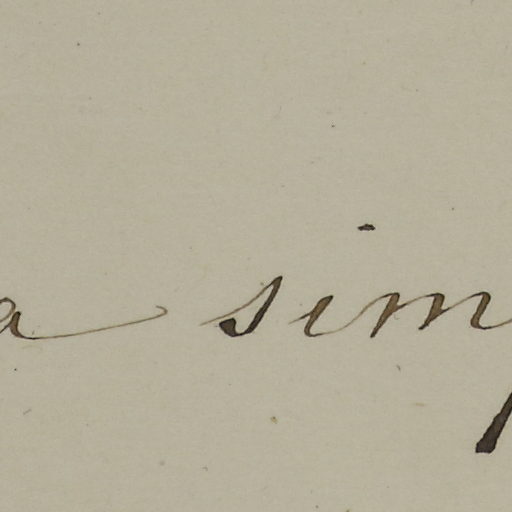 a sim